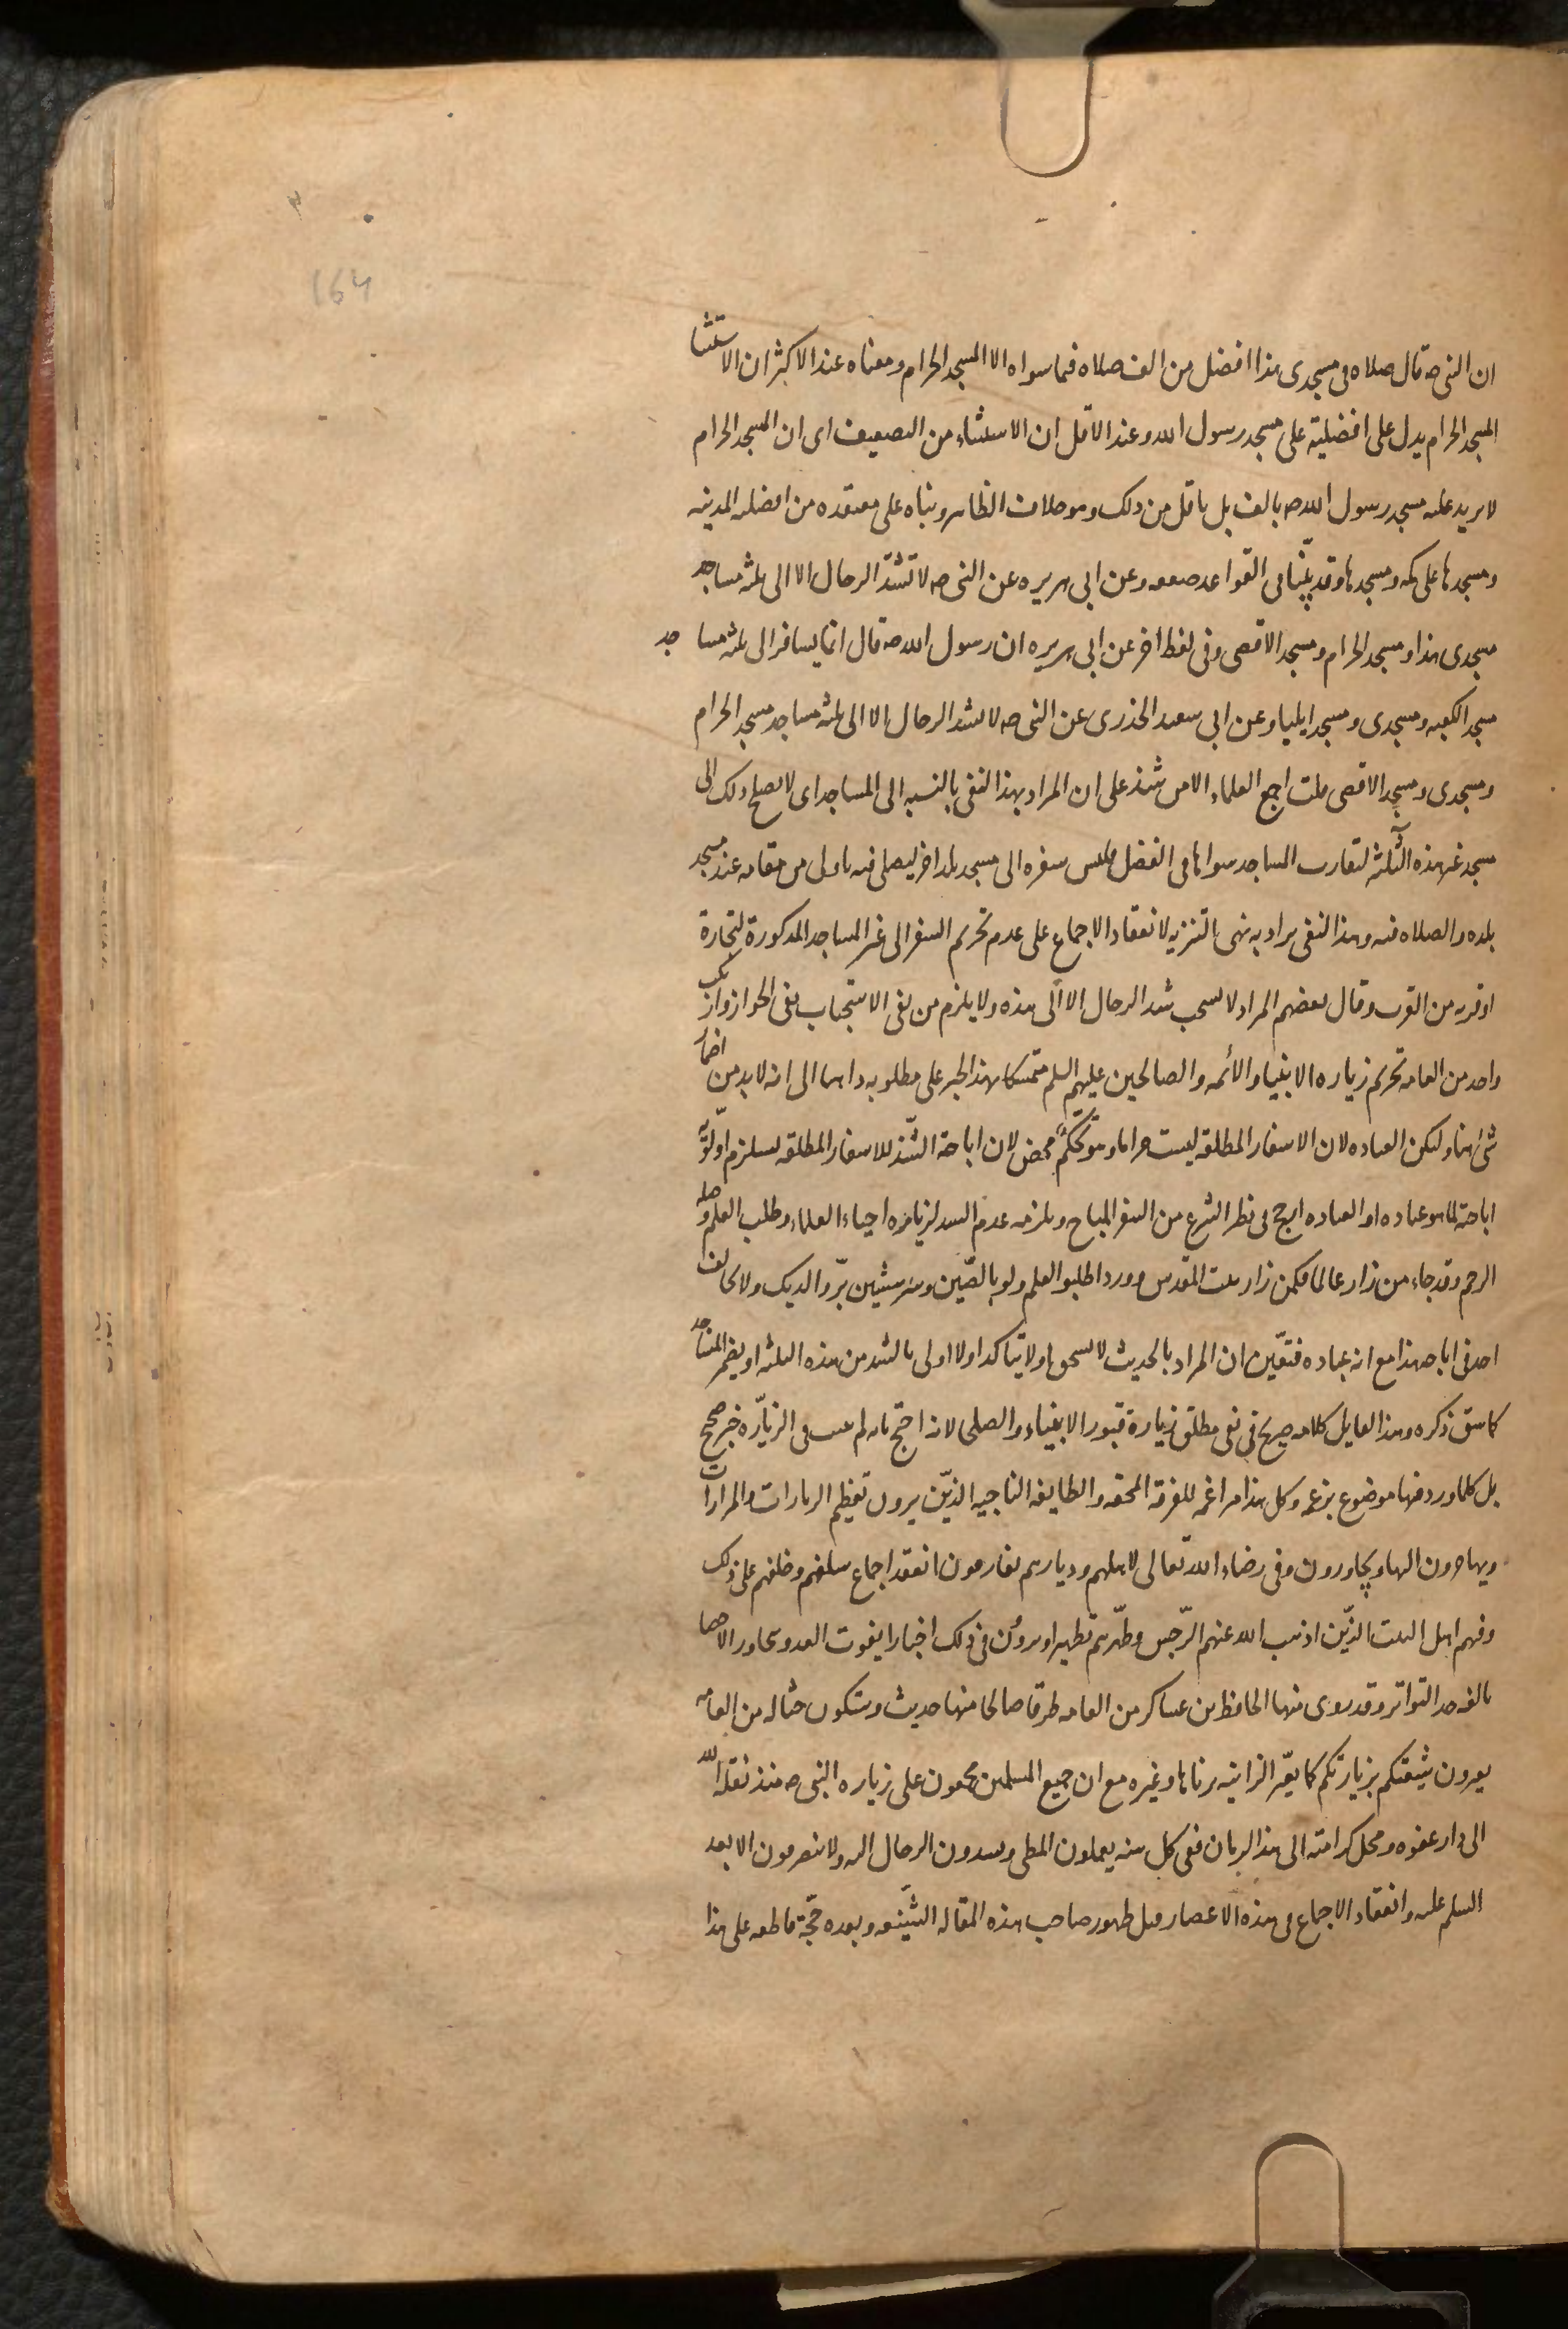 164
ان النبى صه قال صلاه فى مسجدى هذا افضل من الف صلاه فيما سواه الا المسجد الحرام ومعناه عند الاكثر ان الاستثنا
المسجد الحرام يدل على افضليته على مسجد رسول الله وعند الاقل ان الاستثناء من التضعيف اى ان المسجد الحرام
لا يزيد عليه مسجد رسول الله صه بالف بل باقل من ذلك وهو خلاف الظاهر وبناه على معتقده من افضليه المدينه
ومسجدها على مكه ومسجدها وقد بيّنا فى القواعد ضعفه وعن ابى هريره عن النبى صه لا تشدّ الرحال الا الى ثلثه مساجد
مسجدى هذا ومسجد الحرام ومسجد الاقصى وفى لفظ اخر عن ابى هريره ان رسول الله صه قال انما يسافر الى ثلثه مساجد
مسجد الكعبه ومسجدى ومسجد ايليا وعن ابى سعيد الخذرى عن النبى صه لا تشد الرحال الا الى ثلثه مساجد مسجد الحرام
ومسجدى ومسجد الاقصى قلت اجمع العلماء الا من شذ على ان المراد بهذا النفى بالنسبه الى المساجد اى لا يصلح ذلك الى
مسجد غير هذه الثلثه لتقارب المساجد سواها فى الفضل فليس سفره الى مسجد بلد اخر ليصلى فيه باولى من مقامه عند مسجد
بلده والصلاه فيه وهذا النفى يراد به نهى التنزيه لانعقاد الاجماع على عدم تحريم السفر الى غير المساجد المذكورة لتجارة
او قربه من القرب وقال بعضهم المراد لا يستحب شد الرحال الا الى هذه ولا يلزم من نفى الاستحباب نفى الجواز
واحد من العامه تحريم زياره الانبياء والائمه والصالحين عليهم السلم متمسكا بهذا الخبر على مطلوبه ذاهبا الى انه لا بد من اضمار
شئ هنا وليكن العباده لان الاسفار المطلقه ليست حراما وهو تحكّم محض لان اباحة الشّد للاسفار المطلقه يستلزم اولويّه
اباحته لما هو عباده اذ العباده ارجح فى نظر الشرع من السفر المباح ويلزمه عدم الشد لزياره احياء العلماء وطلب العلم وصله
الرحم وقد جاء من زار عالما فكمن زار بيت المقدس وورد اطلبوا العلم ولو بالصّين وسر سنتين برّ والديك ولا يخالف
احد فى اباحه هذا مع انه عباده فتعيّن ان المراد بالحديث لا يستحق او لا يتاكد او لا اولى بالشد من هذه الثلثه او يضمر المساجد
كما سبق ذكره وهذا القايل كلامه صريح فى نفى مطلق زيارة قبور الانبياء والصلحا لانه احتج بانه لم يثبت فى الزيّاره خبر صحيح
بل كلما ورد فيها موضوع بزعمه وكل هذا مراغمه للفرقة المحقه والطايفه الناجيه الذّين يرون تعظيم الزيارات والمزارات
ويهاجرون اليها ويجاورون وفى رضاء الله تعالى لاهلهم وديارهم يفارقون انعقد اجماع سلفهم وخلفهم على ذلك
وفيهم اهل البيت الذّين اذهب الله عنهم الرّجس وطهّرهم تطهيرا ويروون فى ذلك اخبارا يفوت العد ويجاوز الاحصا
بالغه حد التواتر وقد روى منها الحافظ بن عساكر من العامه طرقا صالحا منها حديث وستكون حثاله من العامه
يعيرون شيعتكم بزيارتكم كما يعيّر الزانيه بزناها وغيره مع ان جميع المسلمين مجمعون على زياره النبى صه منذ نقله الله
الى دار عفوه ومحل كرامته الى هذا الزمان ففى كل سنه يعملون المطى ويشدون الرحال اليه ولا ينصرفون الا بعد
السلم عليه وانعقاد الاجماع فى هذه الاعصار قبل ظهور صاحب هذه المقاله الشّنيعه وبعده حجّة قاطعه على هذا